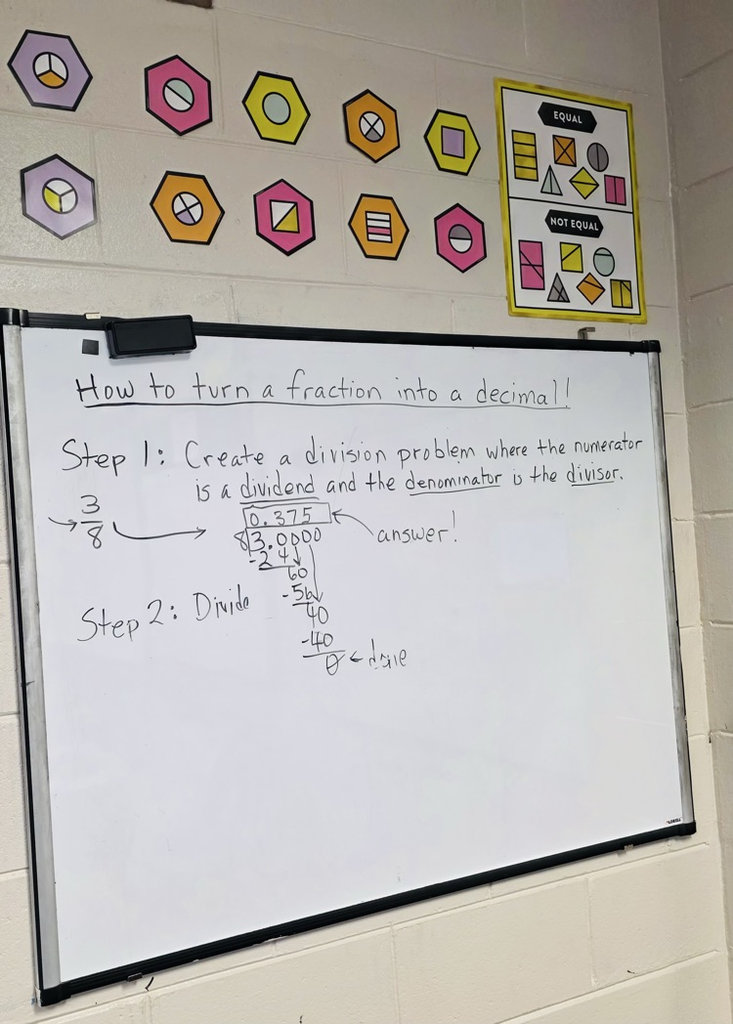 EQUAL
NOT EQUAL
How to turn a fraction into a decimal!
Step 1: Create a division problem where the numerator
is a dividend and the denominator is the divisor.
3
8
0.375
8 3.0000
answer!
-24
60
Step 2: Divide
-56
40
-40
0 ← done